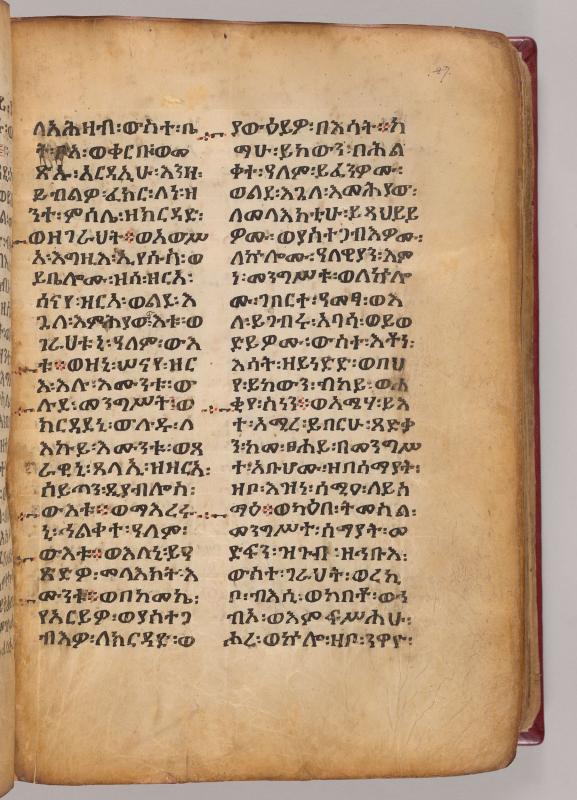 ለአሕዛብ፡ውስተ፡ቤ
ት፡ቦአ፡ወቀርቡ፡ወመ
ጽኡ፡አርዳኢሁ፡እንዘ፡
ይብልዎ፡ፈክር፡ለነ፡ዘ
ንተ፡ምሳሌ፡ዘክርዳድ፡
ወዘገራህት፨ወአውሥ
አ፡እግዚእ፡ኢየሱስ፡ወ
ይቤሎሙ፡ዘሰ፡ዘርአ፡
ሰናየ፡ዘርአ፡ወልደ፡እ
ጓለ፡እምሕያው፡እቱ፡ወ
ገራህቱኒ፡ዓለም፡ውእ
ቱ፨ወዘኒ፡ሠናየ፡ዘር
አ፡እሉ፡እሙንቱ፡ው
ሉደ፡መንግሥት፡ወ
ክርዳደኒ፡ውሉዱ፡ለ
እኩይ፡እሙንቱ፡ወጸ
ራዊኒ፡ጸላኢ፡ዘዘርአ፡
ሰይጣን፡ዲያብሎስ፡
ውእቱ፨ወማእረሩ
ኒ፡ኅልቀተ፡ዓለም፡
ውእቱ፨ወእለኒ፡ይዓ
ጽድዎ፡መላእክት፡እ
ሙንቱ፨ወበከመኬ፡
የአርይዎ፡ወያስተጋ
ብእዎ፡ለክርዳድ፡ወ
ያውዕይዎ፡በእሳት፨ከ
ማሁ፡ይከውን፡በሕል
ቀተ፡ዓለም፡ይፈንዎሙ፡
ወልደ፡እጓለ፡እመሕያው፡
ለመላእክቲሁ፡ይጻህይይ
ዎሙ፡ወያስተጋብእዎሙ፡
ለኵሎሙ፡ዓለዊያን፡እም
ነ፡መንግሥቱ፡ወለኵሎ
ሙ፡ገበርተ፡ዓመፃ፡ወእ
ለ፡ይገብሩ፡አባሳ፡ወይወ
ድይዎሙ፡ውስተ፡እቶነ፡
እሳት፡ዘይነድድ፡ወበህ
የ፡ይከውን፡ብካይ፡ወሐ
ቂየ፡ስነን፨ወአሜሃ፡ይእ
ተ፡አሚረ፡ይበርሁ፡ጻድቃ
ን፡ከመ፡ፀሐይ፡በመንግሥ
ተ፡አቡሆሙ፡ዘበሰማያት፡
ዘቦ፡እዝነ፡ሰሚዐ፡ለይስ
ማዕ፨ወካዕበ፡ትመስል፡
መንግሥተ፡ሰማያት፡መ
ድፋን፡ዝገብ፡ዘኅቡእ፡
ውስተ፡ገራህት፡ወረኪ
ቦ፡ብእሲ፡ወከበቶ፡ወኀ
ብአ፡ወእምፍሥሐሁ፡
ሖረ፡ወኵሎ፡ዘቦ፡ንዋዮ፡